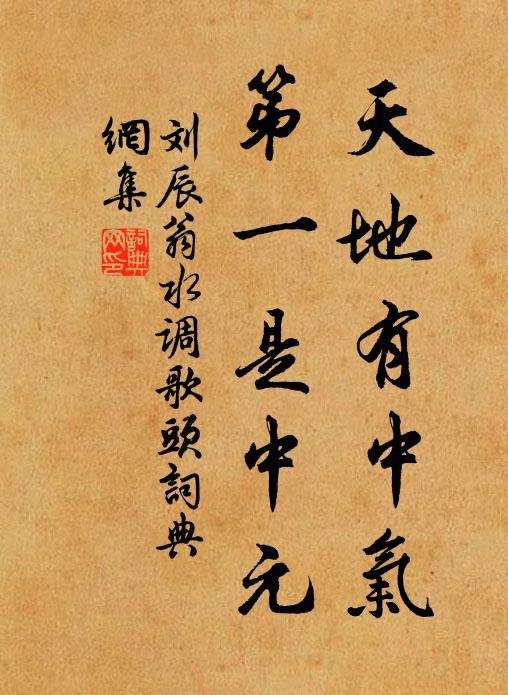 天地有中氣
第一是中元
刘辰翁水调歌頭詞典
網集
詞典
网印